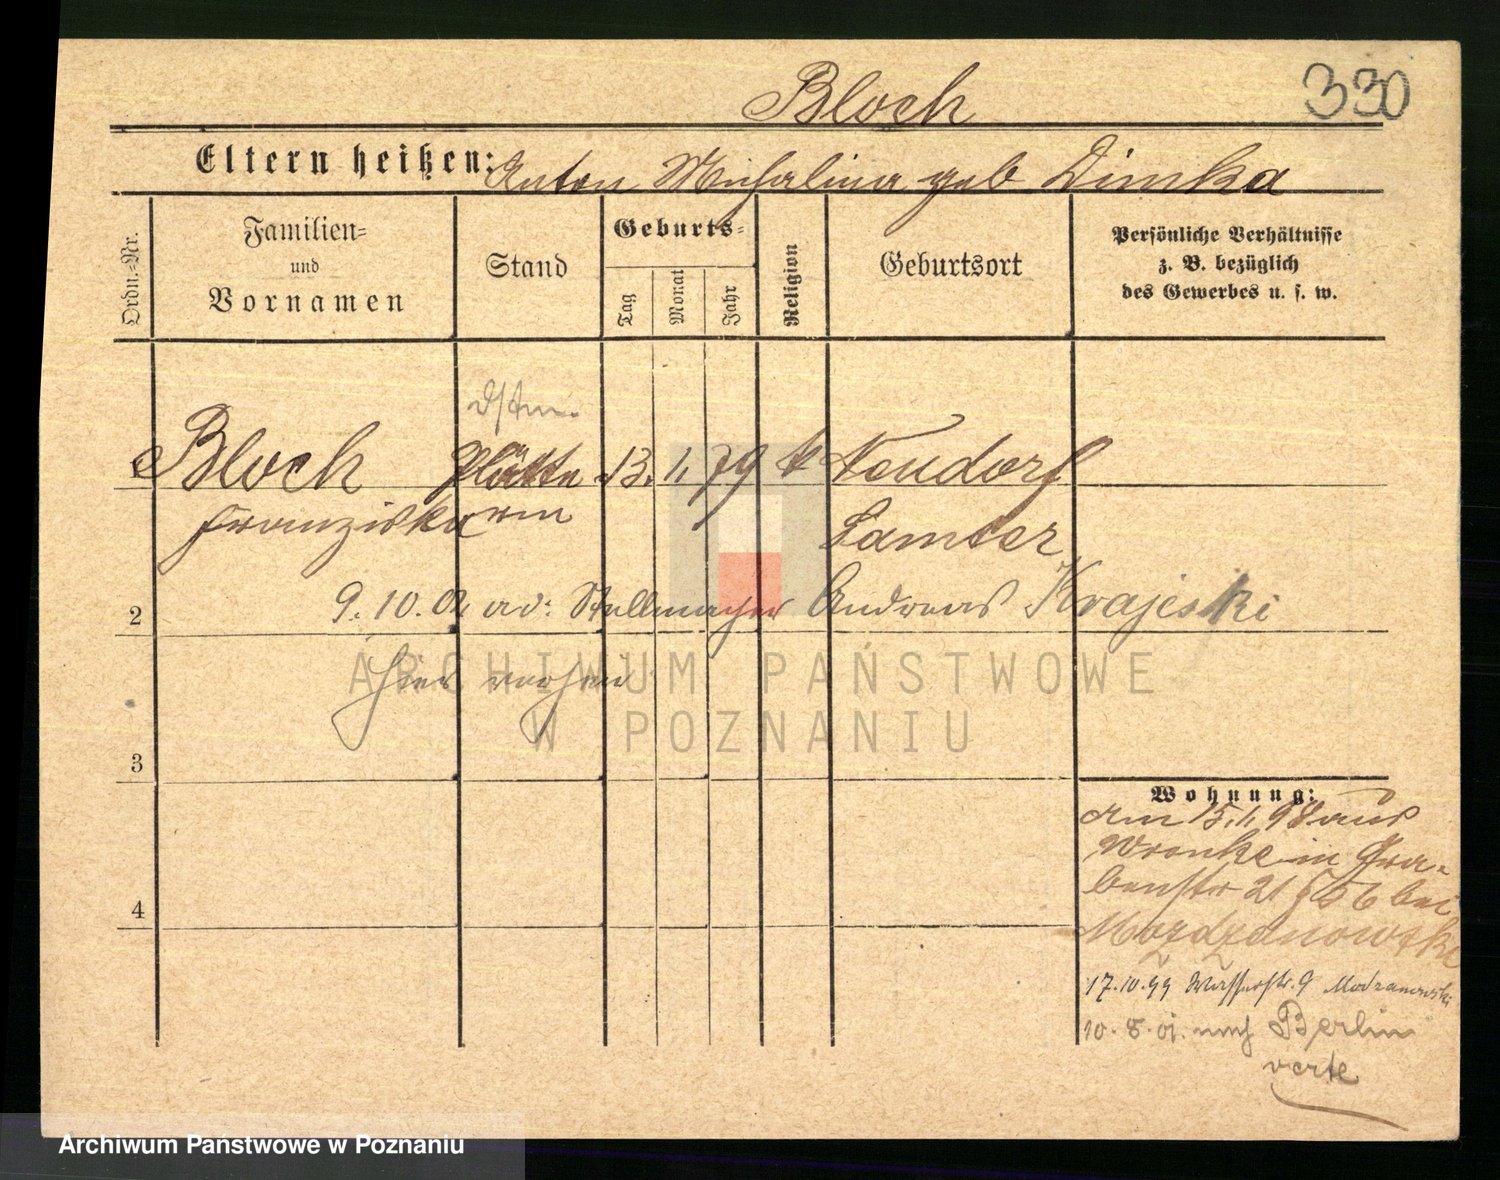 Bloch
330
Eltern heißen: Anton Michalina geb Dimka
Ordn.=Nr.
Familien=
und
Vornamen
Stand
Geburts=
Tag
Monat
Jahr
Religion
Geburtsort
Persönliche Verhältnisse
z. B. bezüglich
des Gewerbes u. s. w.
1
Bloch
Plätte
13. 1. 79
k
Neudorf
Franziska
rin
Samter
2
9. 10. 02 Stellmacher Andreas Krajeski
hier
3
4
Wohnung:
am 15.1.98 aus
Wronke in Gra-
benstr 21 bei
Mozdzanowski
17.10.99 Wasserstr. 9 Modzanowski
10.8.01. nach Berlin
verte
ARCHIWUM PAŃSTWOWE
W POZNANIU
Archiwum Państwowe w Poznaniu